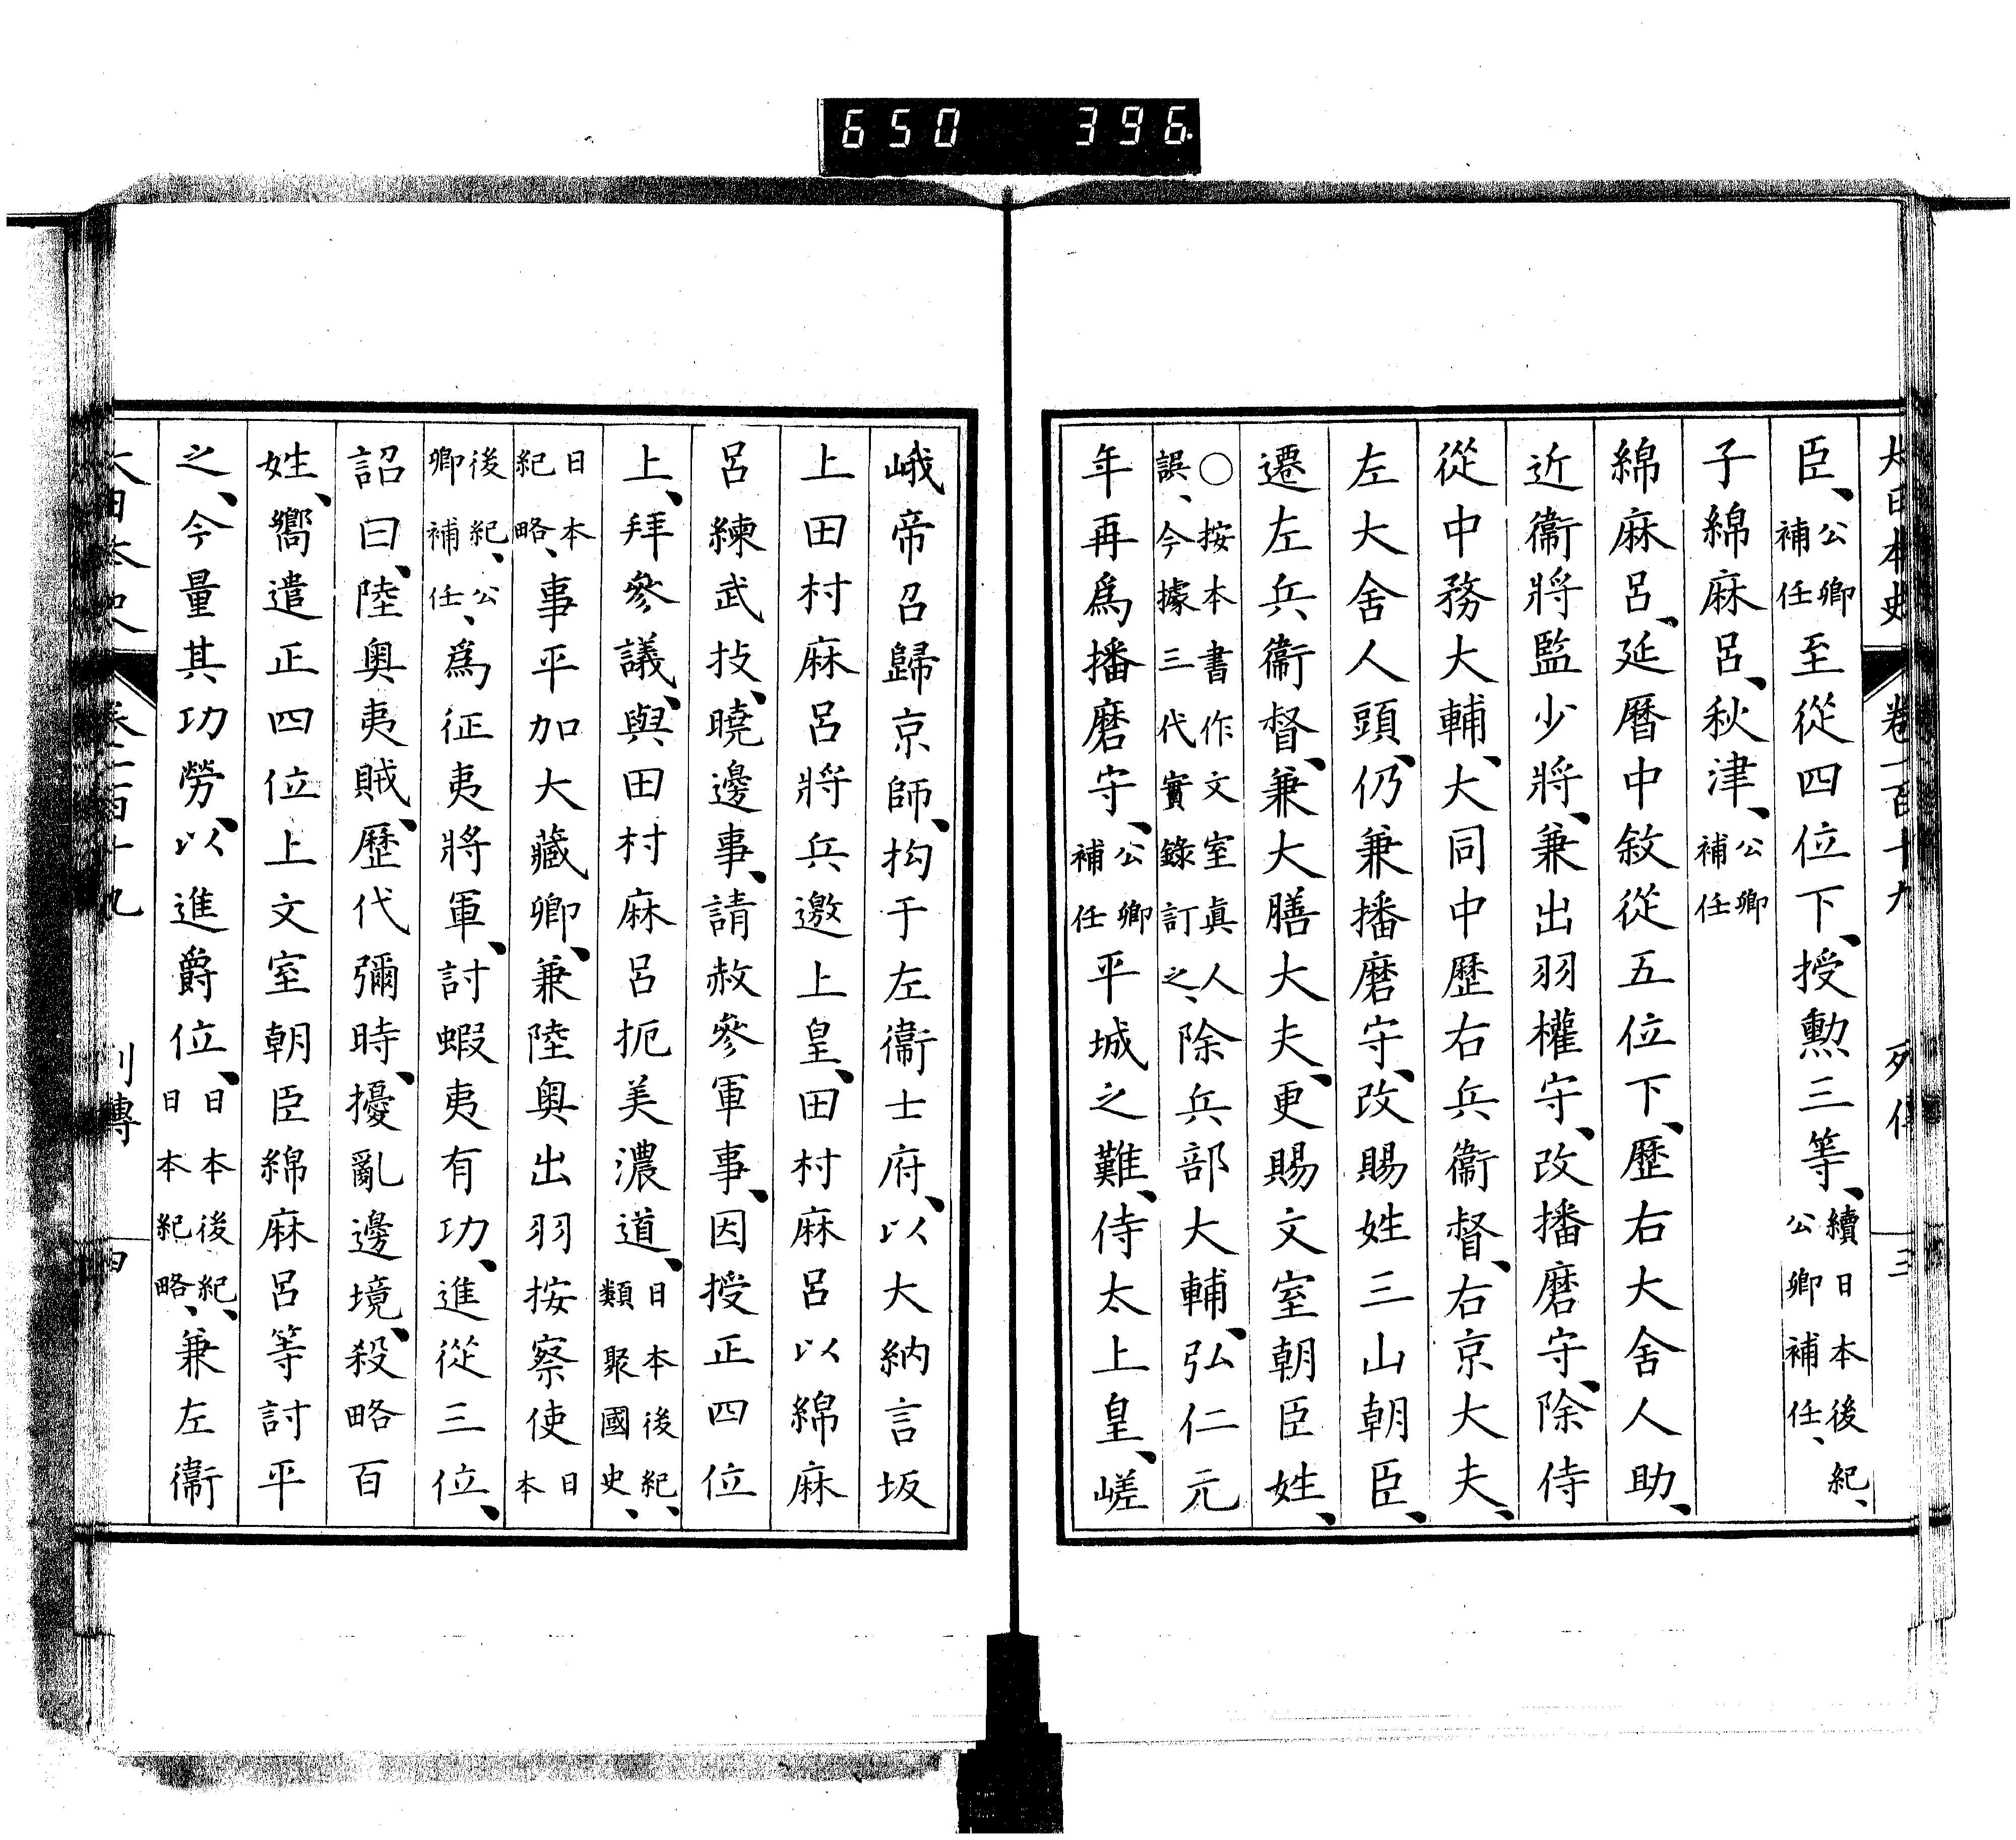 650 396
大日本史 卷一百十九 列傳 三
臣、公卿補任至從四位下、授勲三等、續日本後紀、公卿補任、
子綿麻呂、秋津、公卿補任
綿麻呂、延曆中敘從五位下、歷右大舍人助、
近衞將監少將、兼出羽權守、改播磨守、除侍
從中務大輔、大同中歷右兵衞督、右京大夫、
左大舍人頭、仍兼播磨守、改賜姓三山朝臣、
遷左兵衞督、兼大膳大夫、更賜文室朝臣姓、
○按本書作文室眞人誤、今據三代實錄訂之、除兵部大輔、弘仁元
年再爲播磨守、公卿補任平城之難、侍太上皇、嵯
峨帝召歸京師、拘于左衞士府、以大納言坂
上田村麻呂將兵邀上皇、田村麻呂以綿麻
呂練武技、曉邊事、請赦參軍事、因授正四位
上、拜參議、與田村麻呂扼美濃道、日本後紀、類聚國史、
日本紀略、事平加大藏卿、兼陸奥出羽按察使日本
後紀、公卿補任、爲征夷將軍、討蝦夷有功、進從三位、
詔曰、陸奥夷賊、歷代彌時、擾亂邊境、殺略百
姓、嚮遣正四位上文室朝臣綿麻呂等討平
之、今量其功勞、以進爵位、日本後紀、日本紀略、兼左衞
大日本史 卷一百十九 列傳 四